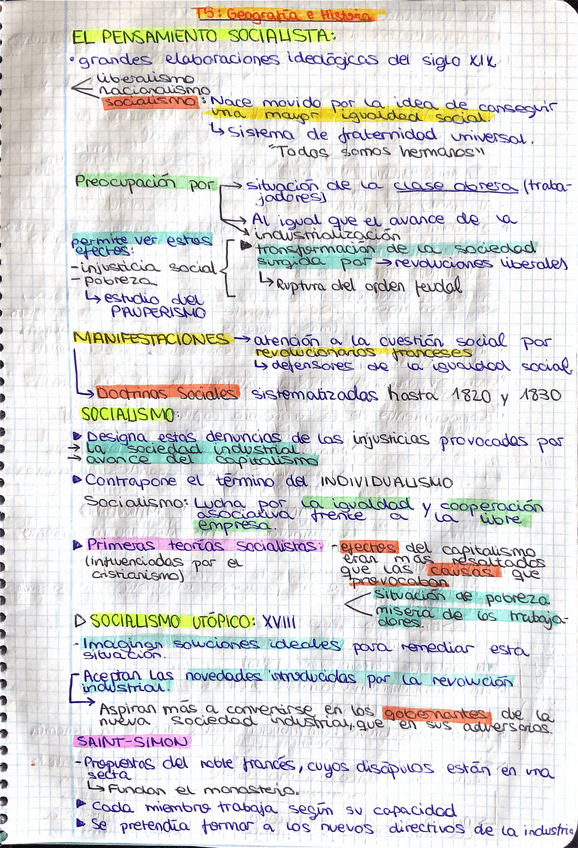 T5: Geografía e Historia
EL PENSAMIENTO SOCIALISTA:
• grandes elaboraciones ideológicas del siglo XIX
liberalismo
nacionalismo
socialismo: Nace movido por la idea de conseguir
una mayor igualdad social.
↳ Sistema de fraternidad universal.
"Todos somos hermanos"
Preocupación por → situación de la clase obrera (traba-
jadores)
→ Al igual que el avance de la
industrialización
permite ver estos
efectos:
- injusticia social
- pobreza
↳ estudio del
PAUPERISMO
▶ transformación de la sociedad
surgida por → revoluciones liberales
↳ Ruptura del orden feudal
MANIFESTACIONES → atención a la cuestión social por
revolucionarios franceses
↳ defensores de la igualdad social
→ Doctrinas Sociales sistematizadas hasta 1820 y 1830
SOCIALISMO:
▶ Designa estas denuncias de las injusticias provocadas por
→ la sociedad industrial
→ avance del capitalismo
▶ Contrapone el término del INDIVIDUALISMO
Socialismo: Lucha por la igualdad y cooperación
asociativa frente a la libre
empresa.
▶ Primeras teorías socialistas: - efectos del capitalismo
(influenciadas por el
cristianismo)
eran más resaltados
que las causas que
provocaban
situación de pobreza
miseria de los trabaja-
dores.
▷ SOCIALISMO UTÓPICO: XVIII
- Imaginan soluciones ideales para remediar esta
situación.
Aceptan las novedades introducidas por la revolución
industrial.
→ Aspiran más a convenirse en los gobernantes de la
nueva sociedad industrial, que en sus adversarios.
SAINT-SIMON
- Propuestas del noble francés, cuyos discípulos están en una
secta
↳ Fundan el monasterio.
▶ Cada miembro trabaja según su capacidad
▶ Se pretendía formar a los nuevos directivos de la industria